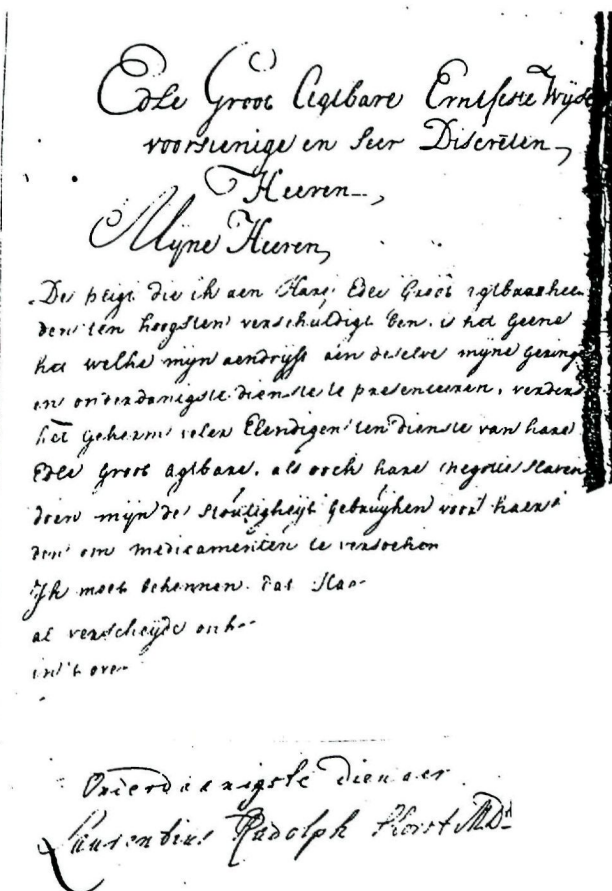 Edle Groot Agtbare Erntfeste Wijse
voorsienige en seer Discreten,
Heeren,
Mijne Heeren,
De pligt die ik aen Hare Edle Groot agtbaarhee
den ten hoogsten verschuldigt ben, is het geene
het welke mijn aendrijft aen deselve mijne geringe
en onderdanigste dienste te presenteeren, verders
het gekerm veler Elendigen ten dienste van hare
Edle Groot agtbare, als ooch hare negotie slaven
doen mijn de stoutigheijt gebruijken voor haer
den om medicamenten te versoeken
Ik moet bekennen dat
al verscheijde
in't
Onderdaanigste dienaer
Laurentius Rudolph Horst MDr